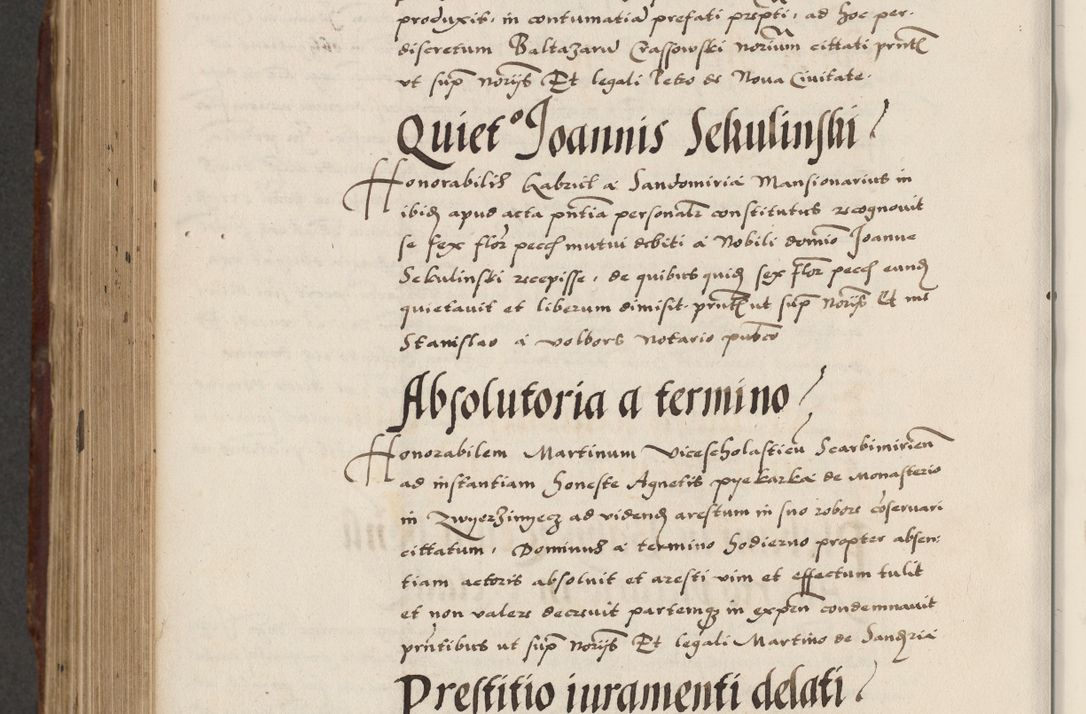 produxit, in contumatia prefati prepti, ad hoc per
discretum Baltazaru Crassowski norium cittati pnte
ut sup norijs Et legali Petro de Nova Civitate.
Quiet° Joannis Sekulinski
Honorabilis Gabriel a Sandomiria Mansionarius in
ibid apud acta pntia personalr constitutus recognovit
se sex flor pecch mutui debiti a Nobili domio Joanne
Sekulinski recepisse, de quibus quid sex flor pecch eund
quietavit et liberum dimisit pntt ut sup norijs Et me
Stanislao a volbors notario pubco
Absolutoria a termino
Honorabilem Martinum vicescholasticu Scarbimirien
ad instantiam honeste Agnetis pyekarka de monasterio
in Zwyerzinyecz ad vidend arestum in suo robore coservari
cittatum, Dominus a termino hodierno propter absen
tiam actoris absolvit et aresti vim et effectum tulit
et non valere decrevit partemq in expen condemnavit
pntibus ut sup norijs Et legali Martino de Sandria
Prestitio iuramenti delati